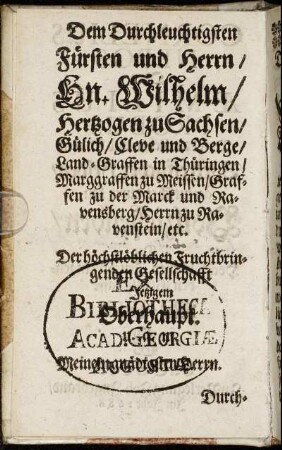 Dem Durchleuchtigsten
Fürsten und Herrn/
Hn. Wilhelm/
Hertzogen zu Sachsen/
Gülich/Cleve und Berge/
Land-Graffen in Thüringen/
Marggraffen zu Meissen/Graf-
fen zu der Marck und Ra-
vensberg/Herrn zu Ra-
venstein/etc.
Der höchstlöblichen Fruchtbrin-
genden Gesellschafft
Jetzigem
EX
BIBLIOTHECA
Oberhaupt.
ACAD. GEORGIÆ
Meinem gnädigsten Herrn.
Durch-